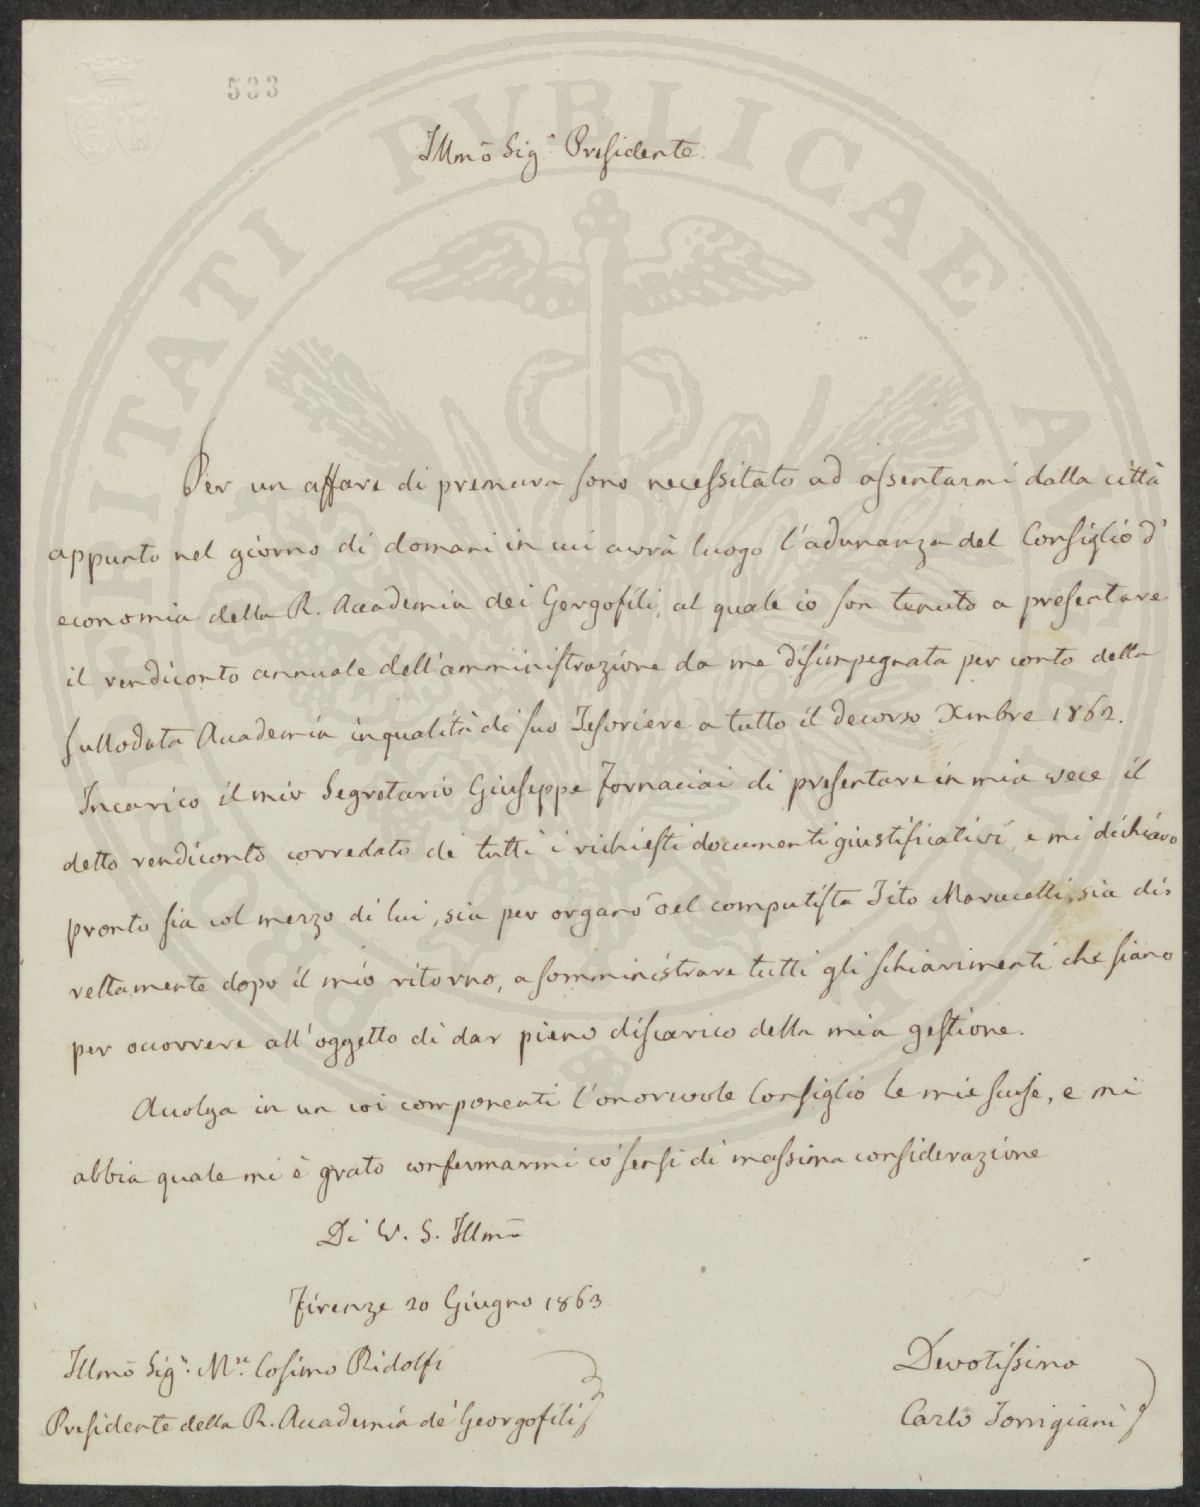 533
PROSPERITATI PUBLICAE AUGENDAE
Illmo Sigr Presidente.
Per un affare di premura sono necessitato ad assentarmi dalla città
appunto nel giorno di domani in cui avrà luogo l'adunanza del Consiglio d'
economia della R. Accademia dei Gergofili, al quale io son tenuto a presentare
il rendiconto annuale dell'amministrazione da me disimpegnata per conto della
sullodata Accademia in qualità di suo Tesoriere a tutto il decorso Xmbre 1862.
Incarico il mio Segretario Giuseppe Fornaciai di presentare in mia vece il
detto rendiconto corredato de' tutti i richiesti documenti giustificativi, e mi dichiaro
pronto sia col mezzo di lui, sia per organo del computista Tito Marucelli, sia di=
rettamente dopo il mio ritorno, a somministrare tutti gli schiarimenti che siano
per occorrere all'oggetto di dar pieno discarico della mia gestione.
Accolga in un coi componenti l'onorevole Consiglio le mie scuse, e mi
abbia quale mi è grato confermarmi co' sensi di massima considerazione
Di V. S. Illma
Firenze 20 Giugno 1863
Illmo Sigr. Mse Cosimo Ridolfi
Presidente della R. Accademia de' Georgofili
Devotissimo
Carlo Torrigiani